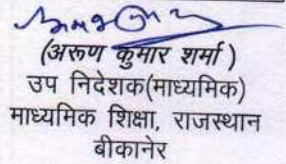 (अरूण कुमार शर्मा )
उप निदेशक(माध्यमिक)
माध्यमिक शिक्षा, राजस्थान
बीकानेर